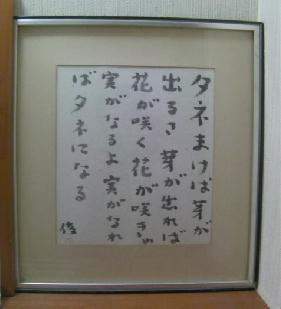 タネまけば芽が
出るさ芽が出れば
花が咲く花が咲きゃ
実がなるよ実がなれ
ばタネになる